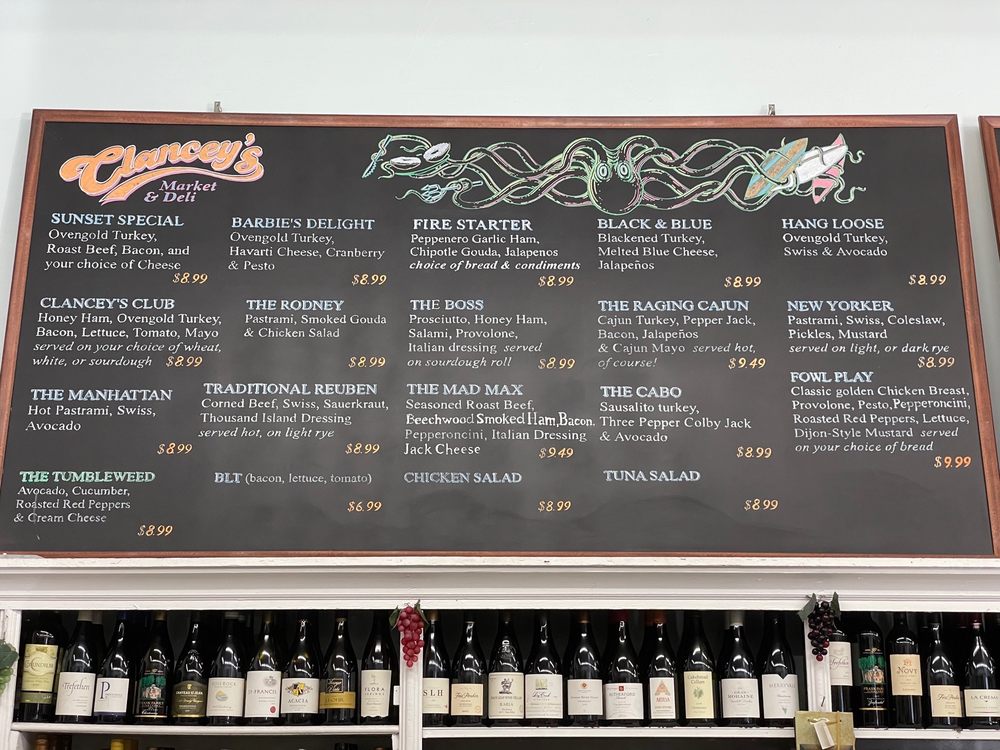 Clancey's
Market
& Deli
SUNSET SPECIAL
Ovengold Turkey,
Roast Beef, Bacon, and
your choice of Cheese
$8.99
BARBIE'S DELIGHT
Ovengold Turkey,
Havarti Cheese, Cranberry
& Pesto
$8.99
FIRE STARTER
Peppenero Garlic Ham,
Chipotle Gouda, Jalapenos
choice of bread & condiments
$8.99
BLACK & BLUE
Blackened Turkey,
Melted Blue Cheese,
Jalapeños
$8.99
HANG LOOSE
Ovengold Turkey,
Swiss & Avocado
$8.99
CLANCEY'S CLUB
Honey Ham, Ovengold Turkey,
Bacon, Lettuce, Tomato, Mayo
served on your choice of wheat,
white, or sourdough $8.99
THE RODNEY
Pastrami, Smoked Gouda
& Chicken Salad
$8.99
THE BOSS
Prosciutto, Honey Ham,
Salami, Provolone,
Italian dressing served
on sourdough roll $8.99
THE RAGING CAJUN
Cajun Turkey, Pepper Jack,
Bacon, Jalapeños
& Cajun Mayo served hot,
of course! $9.49
NEW YORKER
Pastrami, Swiss, Coleslaw,
Pickles, Mustard
served on light, or dark rye
$8.99
THE MANHATTAN
Hot Pastrami, Swiss,
Avocado
$8.99
TRADITIONAL REUBEN
Corned Beef, Swiss, Sauerkraut,
Thousand Island Dressing
served hot, on light rye
$8.99
THE MAD MAX
Seasoned Roast Beef,
Beechwood Smoked Ham, Bacon.
Pepperoncini, Italian Dressing
Jack Cheese
$9.49
THE CABO
Sausalito turkey,
Three Pepper Colby Jack
& Avocado
$8.99
FOWL PLAY
Classic golden Chicken Breast,
Provolone, Pesto, Pepperoncini,
Roasted Red Peppers, Lettuce,
Dijon-Style Mustard served
on your choice of bread
$9.99
THE TUMBLEWEED
Avocado, Cucumber,
Roasted Red Peppers
& Cream Cheese
$8.99
BLT (bacon, lettuce, tomato)
$6.99
CHICKEN SALAD
$8.99
TUNA SALAD
$8.99
Trefethen
P
ST FRANCIS
ACACIA
FLORA
SLH
RUTHERFORD
Trefethen
NOVY
LA CREMA